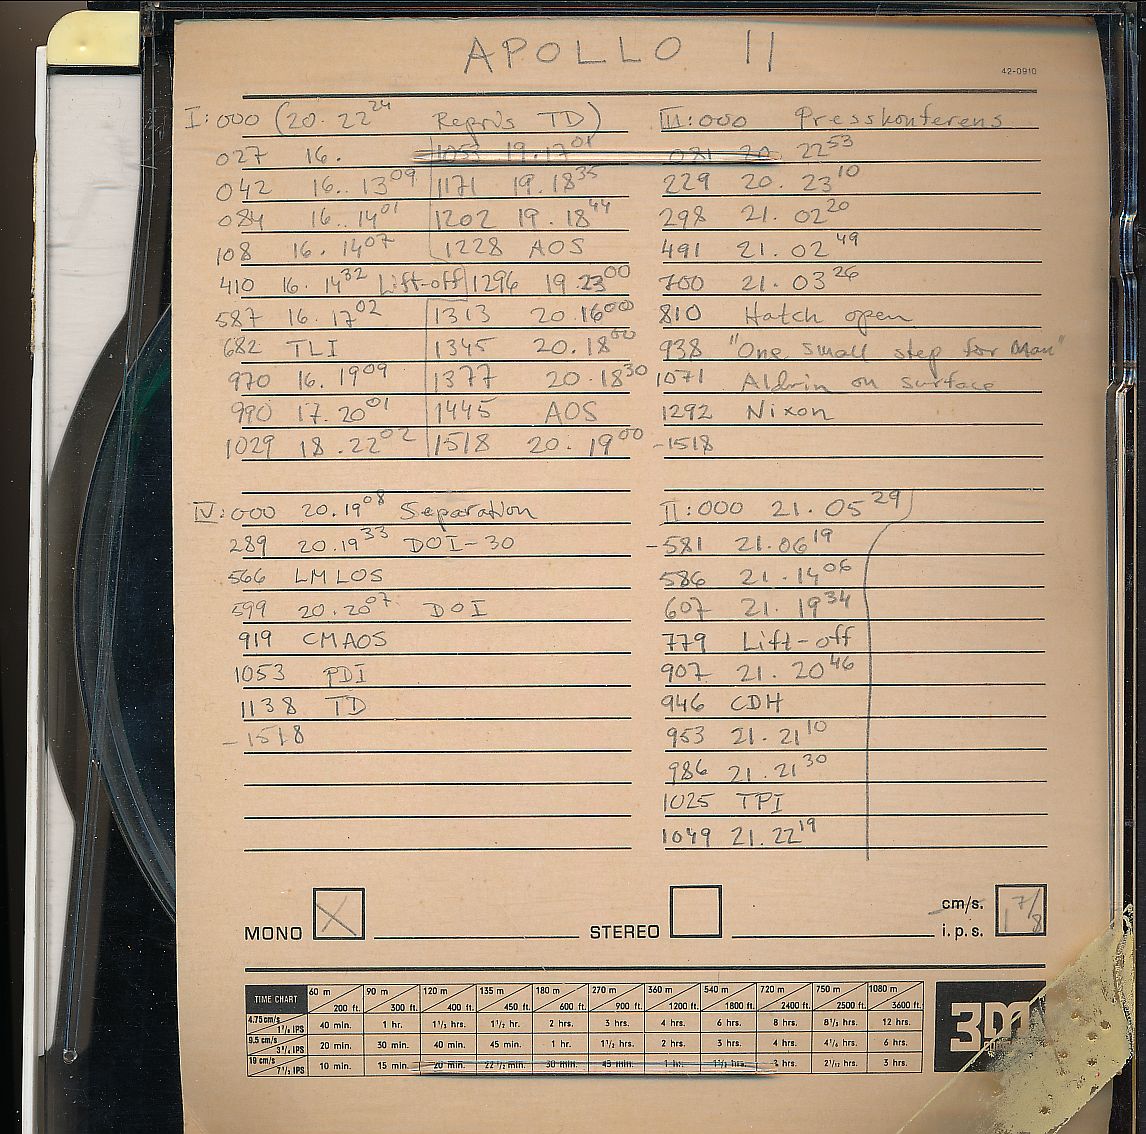 APOLLO 11
42-0910
I:000 (20.22²⁴ Repris TD)
027 16.
042 16..13⁰⁹
084 16..14⁰¹
108 16.14⁰⁷
410 16.14³² Lift-off
587 16.17⁰²
682 TLI
970 16.19⁰⁹
990 17.20⁰¹
1029 18.22⁰²
1053 19.17⁰¹
1171 19.18³⁵
1202 19.18⁴⁴
1228 AOS
1296 19.23⁰⁰
1313 20.16⁰⁰
1345 20.18⁰⁰
1377 20.18³⁰
1445 AOS
1518 20.19⁰⁰
III:000 Presskonferens
081 20 22⁵³
229 20.23¹⁰
298 21.02²⁰
491 21.02⁴⁹
700 21.03²⁶
810 Hatch open
938 "One small step for Man"
1071 Aldrin on surface
1292 Nixon
-1518
IV:000 20.19⁰⁸ Separation
289 20.19³³ DOI-30
566 LMLOS
599 20.20⁰⁷ DOI
919 CMAOS
1053 PDI
1138 TD
-1518
II:000 21.05²⁹
-581 21.06¹⁹
586 21.14⁰⁶
607 21.19³⁴
779 Lift-off
907 21.20⁴⁶
946 CDH
953 21.21¹⁰
986 21.21³⁰
1025 TPI
1049 21.22¹⁹
MONO X STEREO cm/s. i.p.s. 1 7/8
TIME CHART 60 m 200 ft. 90 m 300 ft. 120 m 400 ft. 135 m 450 ft. 180 m 600 ft. 270 m 900 ft. 360 m 1200 ft. 540 m 1800 ft. 720 m 2400 ft. 750 m 2500 ft. 1080 m 3600 ft.
4.75 cm/s 1⁷/₈ IPS 40 min. 1 hr. 1¹/₃ hrs. 1¹/₂ hr. 2 hrs. 3 hrs. 4 hrs. 6 hrs. 8 hrs. 8¹/₃ hrs. 12 hrs.
9.5 cm/s 3³/₄ IPS 20 min. 30 min. 40 min. 45 min. 1 hr. 1¹/₂ hrs. 2 hrs. 3 hrs. 4 hrs. 4¹/₆ hrs. 6 hrs.
19 cm/s 7¹/₂ IPS 10 min. 15 min. 20 min. 22¹/₂ min. 30 min. 45 min. 1 hr. 1¹/₂ hrs. 2 hrs. 2¹/₁₂ hrs. 3 hrs.
3M